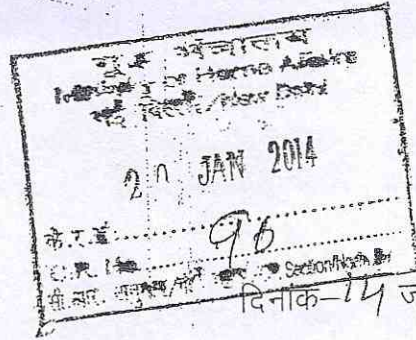 गृह मंत्रालय
Ministry of Home Affairs
नई दिल्ली/New Delhi
20 JAN 2014
के.र.सं.
96
C.R. No.
सी.आर. अनुभाग/ Section
दिनांक-14 ज